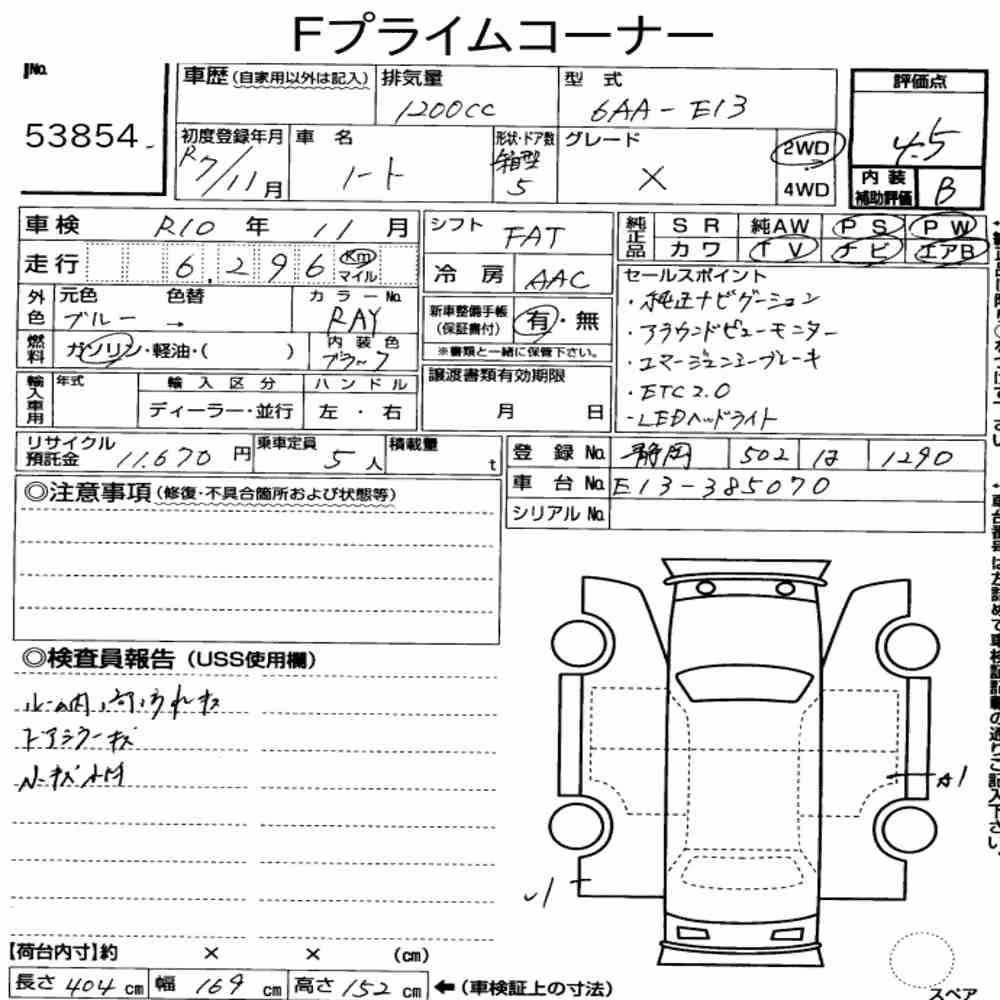 Fプライムコーナー
No.
53854
車歴(自家用以外は記入)
排気量
1200cc
型 式
6AA-E13
評価点
4.5
初度登録年月
R7/11月
車 名
ノート
形状・ドア数
箱型
5
グレード
X
2WD
4WD
内装
補助評価
B
車検 R10 年 11 月
走行 6,296 Km
マイル
外色
元色
色替
ブルー →
カラーNo.
RAY
燃料
ガソリン・軽油・( )
内装色
ブラック
輸入車用
年式
輸入区分
ディーラー・並行
ハンドル
左・右
シフト FAT
冷房 AAC
新車整備手帳
(保証書付)
有・無
※書類と一緒に保管下さい。
譲渡書類有効期限
月 日
純正品
SR 純AW PS PW
カワ TV ナビ エアB
セールスポイント
・純正ナビゲーション
・アラウンドビューモニター
・エマージェンシーブレーキ
・ETC2.0
・LEDヘッドライト
リサイクル
預託金 11.670 円
乗車定員 5人
積載量 t
登録No. 静岡 502 は 1290
車台No. E13-385070
シリアルNo.
◎注意事項(修復・不具合箇所および状態等)
◎検査員報告(USS使用欄)
ルーム内、
キズ
ドアミラーキズ
A1
【荷台内寸】約 × × (cm)
長さ 404 cm 幅 169 cm 高さ 152 cm ←(車検証上の寸法)
スペア
車台番号は左詰めで車検証記載の通りご記入下さい。